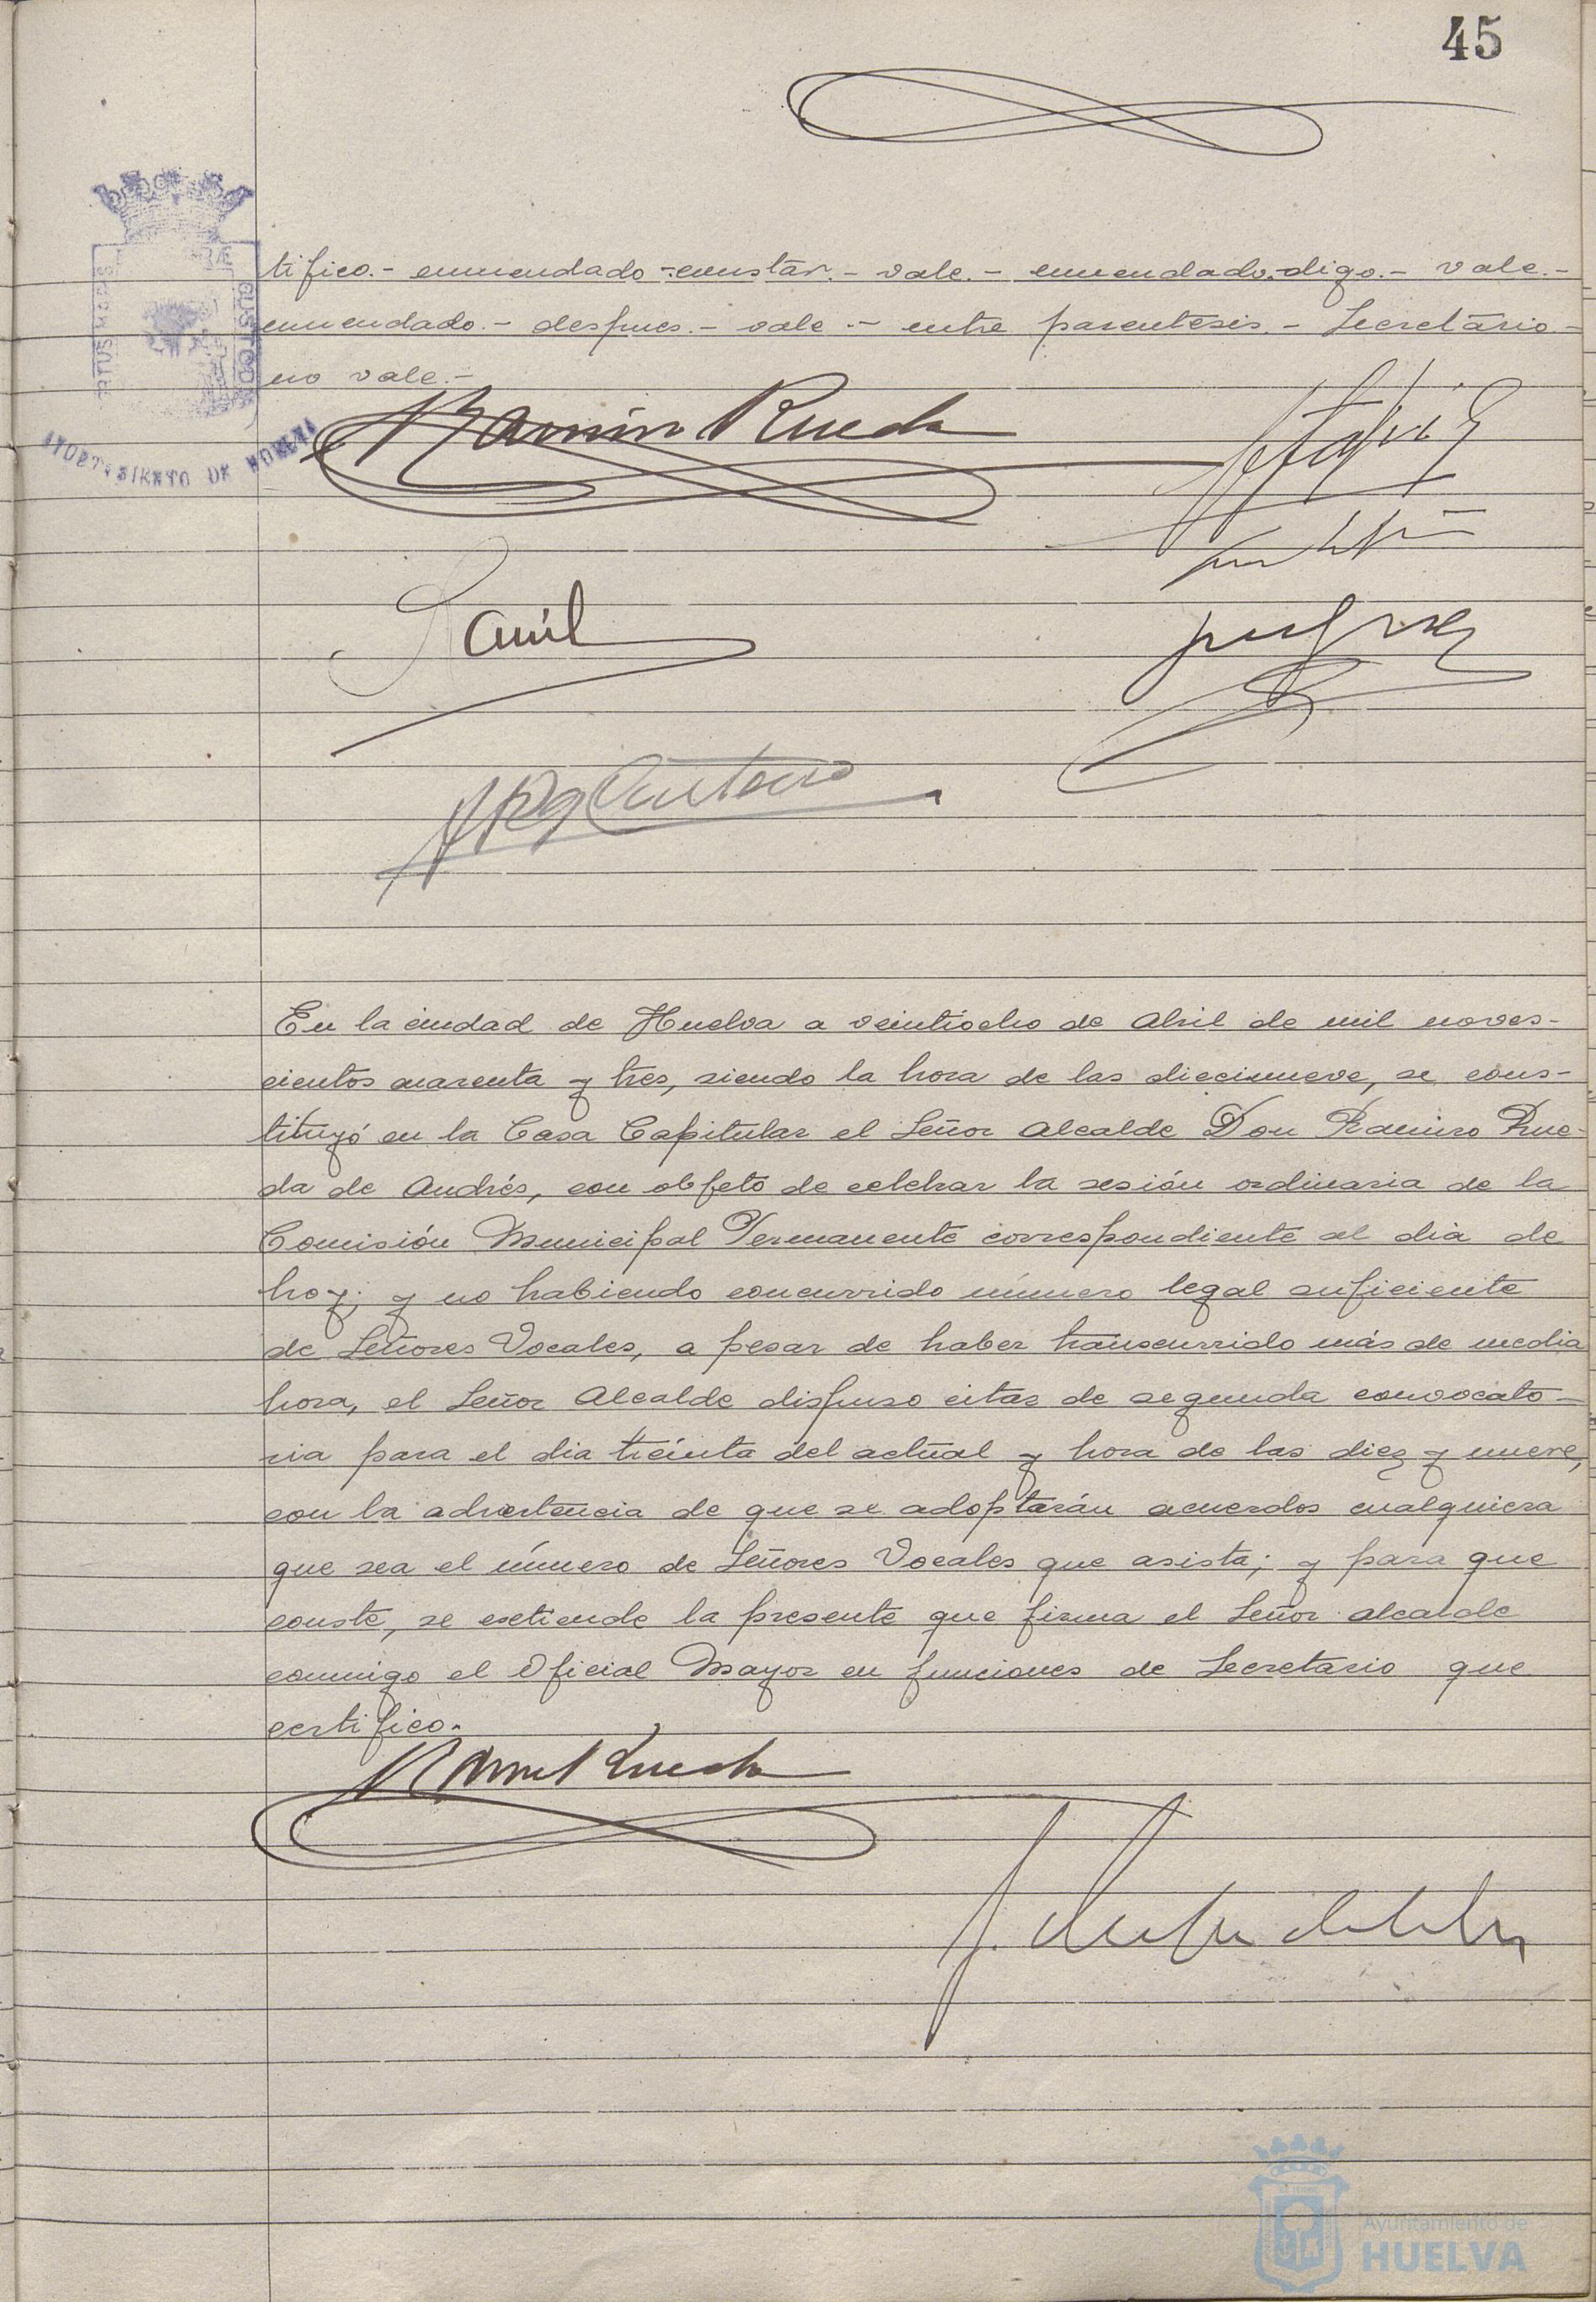 45
tifico.- enmendado -constar.- vale.- enmendado.-digo.- vale.-
enmendado.- despues.- vale.- entre parentesis.- Secretario.-
no vale.-
Ramiro Rueda
En la ciudad de Huelva a veintiocho de Abril de mil noves-
cientos cuarenta y tres, siendo la hora de las diecinueve, se cons-
tituyó en la Casa Capitular el Señor Alcalde Don Ramiro Rue-
da de Andrés, con objeto de celebrar la sesión ordinaria de la
Comisión Municipal Permanente correspondiente al dia de
hoy; y no habiendo concurrido número legal suficiente
de Señores Vocales, a pesar de haber transcurrido más de media
hora, el Señor Alcalde dispuso citar de segunda convocato-
ria para el dia treinta del actual y hora de las diez y nueve,
con la advertencia de que se adoptarán acuerdos cualquiera
que sea el número de Señores Vocales que asista; y para que
conste, se extiende la presente que firma el Señor Alcalde
conmigo el Oficial Mayor en funciones de Secretario que
certifico.
Ramiro Rueda
Ayuntamiento de
HUELVA